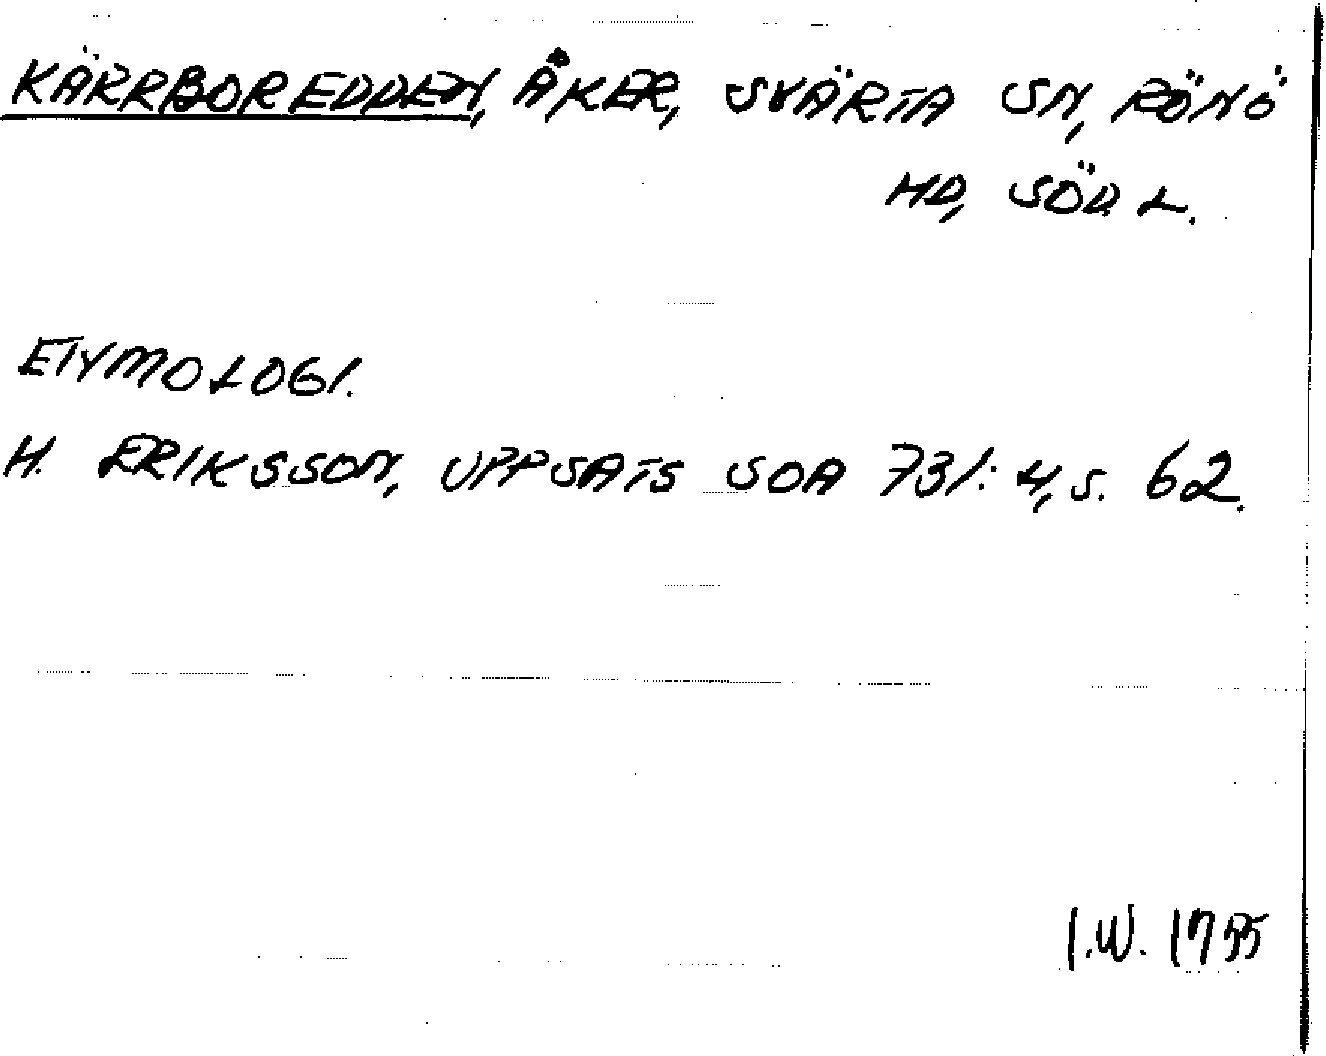 KÄRRBOREDDEN, ÅKER, SVÄRTA SN, RÖNÖ
HD, SÖD L.
ETYMOLOGI.
H. ERIKSSON, UPPSATS SOA 731:4, S. 62.
I.W. 1755